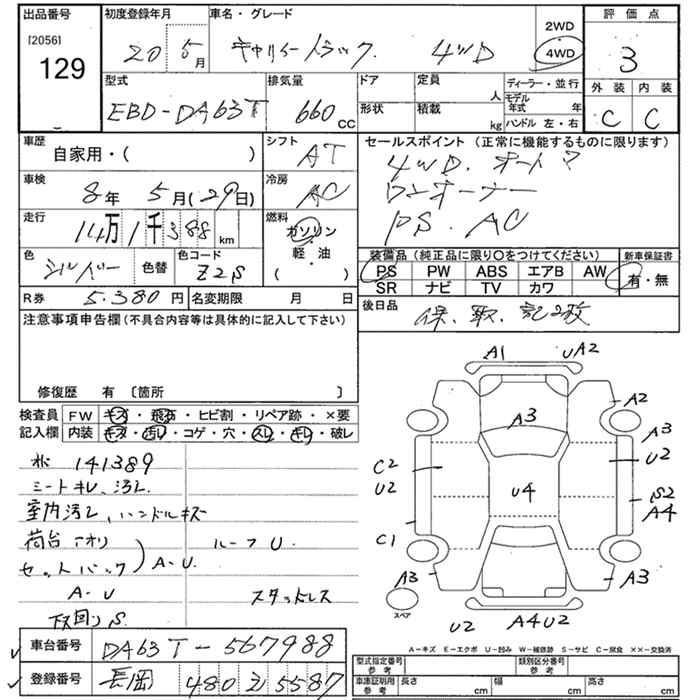 出品番号
[2056]
129
初度登録年月
20 5月
車名・グレード
キャリィートラック. 4WD
2WD
4WD
評価点
3
外装 内装
C C
型式
EBD-DA63T
排気量
660cc
ドア
形状
定員
人
積載
kg
ディーラー・並行
モデル年式 年
ハンドル 左・右
車歴
自家用・( )
シフト
AT
車検
8年 5月(29日)
冷房
AC
走行
14万1千388km
燃料
ガソリン
軽・油
( )
色
シルバー
色替
色コード
Z2S
R券
5.380円
名変期限 月 日
セールスポイント (正常に機能するものに限ります)
4WD. オートマ
ワンオーナー
PS. AC
装備品 (純正品に限り○をつけてください)
PS PW ABS エアB AW
SR ナビ TV カワ
新車保証書
有・無
後日品
保、取、記2枚
注意事項申告欄(不具合内容等は具体的に記入して下さい)
修復歴 有 〔箇所 〕
検査員記入欄
FW キズ・飛石・ヒビ割・リペア跡・×要
内装 キズ・汚レ・コゲ・穴・スレ・キレ・破レ
141389
シートキレ、汚レ
室内汚レ、ハンドルキズ
荷台アオリ
セットバック
A-U
ルーフU
A-U
スタッドレス
下回りS
A1 UA2
A2
A3
A3
U2
C2
U2
U4
S2
A4
C1
A3
A3
スペア
U2 A4U2
A-キズ E-エクボ U-凹み W-補修跡 S-サビ C-腐食 ××-交換済
車台番号
DA63T-567988
登録番号
長岡 480 え 5587
型式指定番号
参考
類別区分番号
参考
車庫証明用
参考
長さ cm
幅 cm
高さ cm